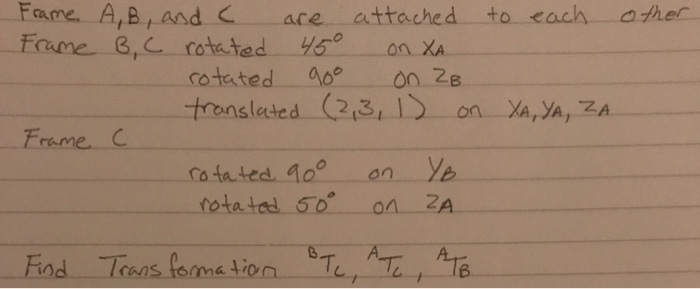 Frame A, B, and C are attached to each other
Frame B, C rotated 45° on XA
rotated 90° on ZB
translated (2,3,1) on XA, YA, ZA
Frame C
rotated 90° on YB
rotated 50° on ZA
Find Transformation ᴮTC, ᴬTC, ᴬTB